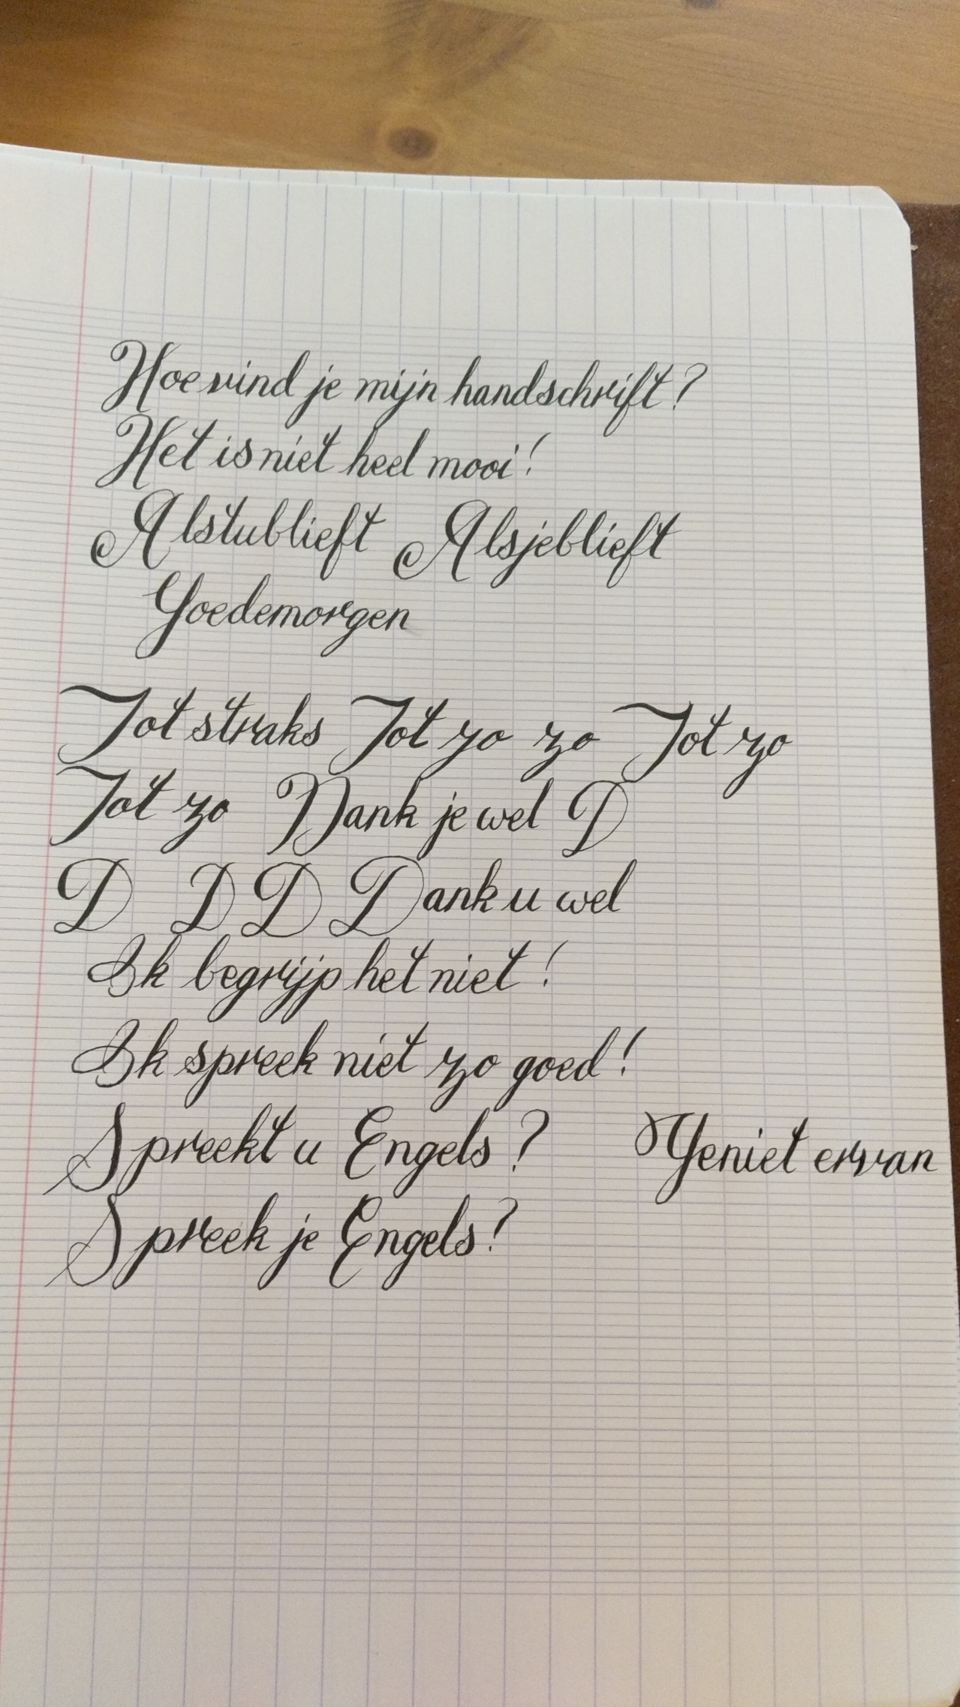 Hoe vind je mijn handschrift?
Het is niet heel mooi!
Alstublieft Alsjeblieft
Goedemorgen
Tot straks Tot zo zo Tot zo
Tot zo Dank je wel D
D D D Dank u wel
Ik begrijp het niet!
Ik spreek niet zo goed!
Spreekt u Engels? Geniet ervan
Spreek je Engels?